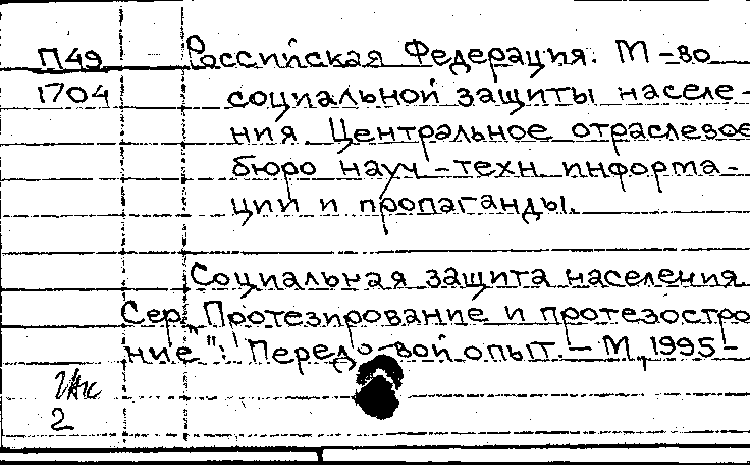 П49 Российская Федерация. М-во
1704 социальной защиты населе-
ния. Центральное отраслевое
бюро науч.-техн. информа-
ции и пропаганды.
Социальная защита населения.
Сер. "Протезирование и протезостро
ние": Передовой опыт. - М., 1995 -
2